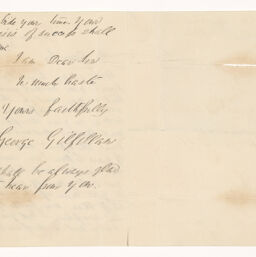 bide your time your
of success shall
I am Dear Sir
In much haste
Yours faithfully
George Gilfillan
shall be always glad
to hear from you.